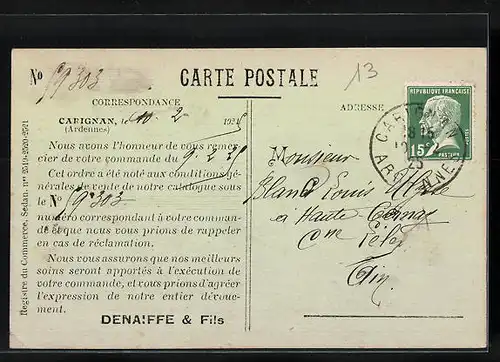 No 59303
CARTE POSTALE
13
RÉPUBLIQUE FRANÇAISE
15c
PASTEUR
CARIGNAN
CORRESPONDANCE
ADRESSE
CARIGNAN, le 10-2- 1925
(Ardennes)
Nous avons l'honneur de vous remer-
cier de votre commande du 9.2.25
Cet ordre a été noté aux conditions gé-
nérales de vente de notre catalogue sous
le No 59303
numéro correspondant à votre comman-
de et que nous vous prions de rappeler
en cas de réclamation.
Nous vous assurons que nos meilleurs
soins seront apportés à l'exécution de
votre commande, et vous prions d'agréer
l'expression de notre entier dévoue-
ment.
DENAIFFE & Fils
Registre du Commerce, Sedan. nos 2519-2520-2521
Monsieur
Blanc Louis
à Haute
Cne
Ain